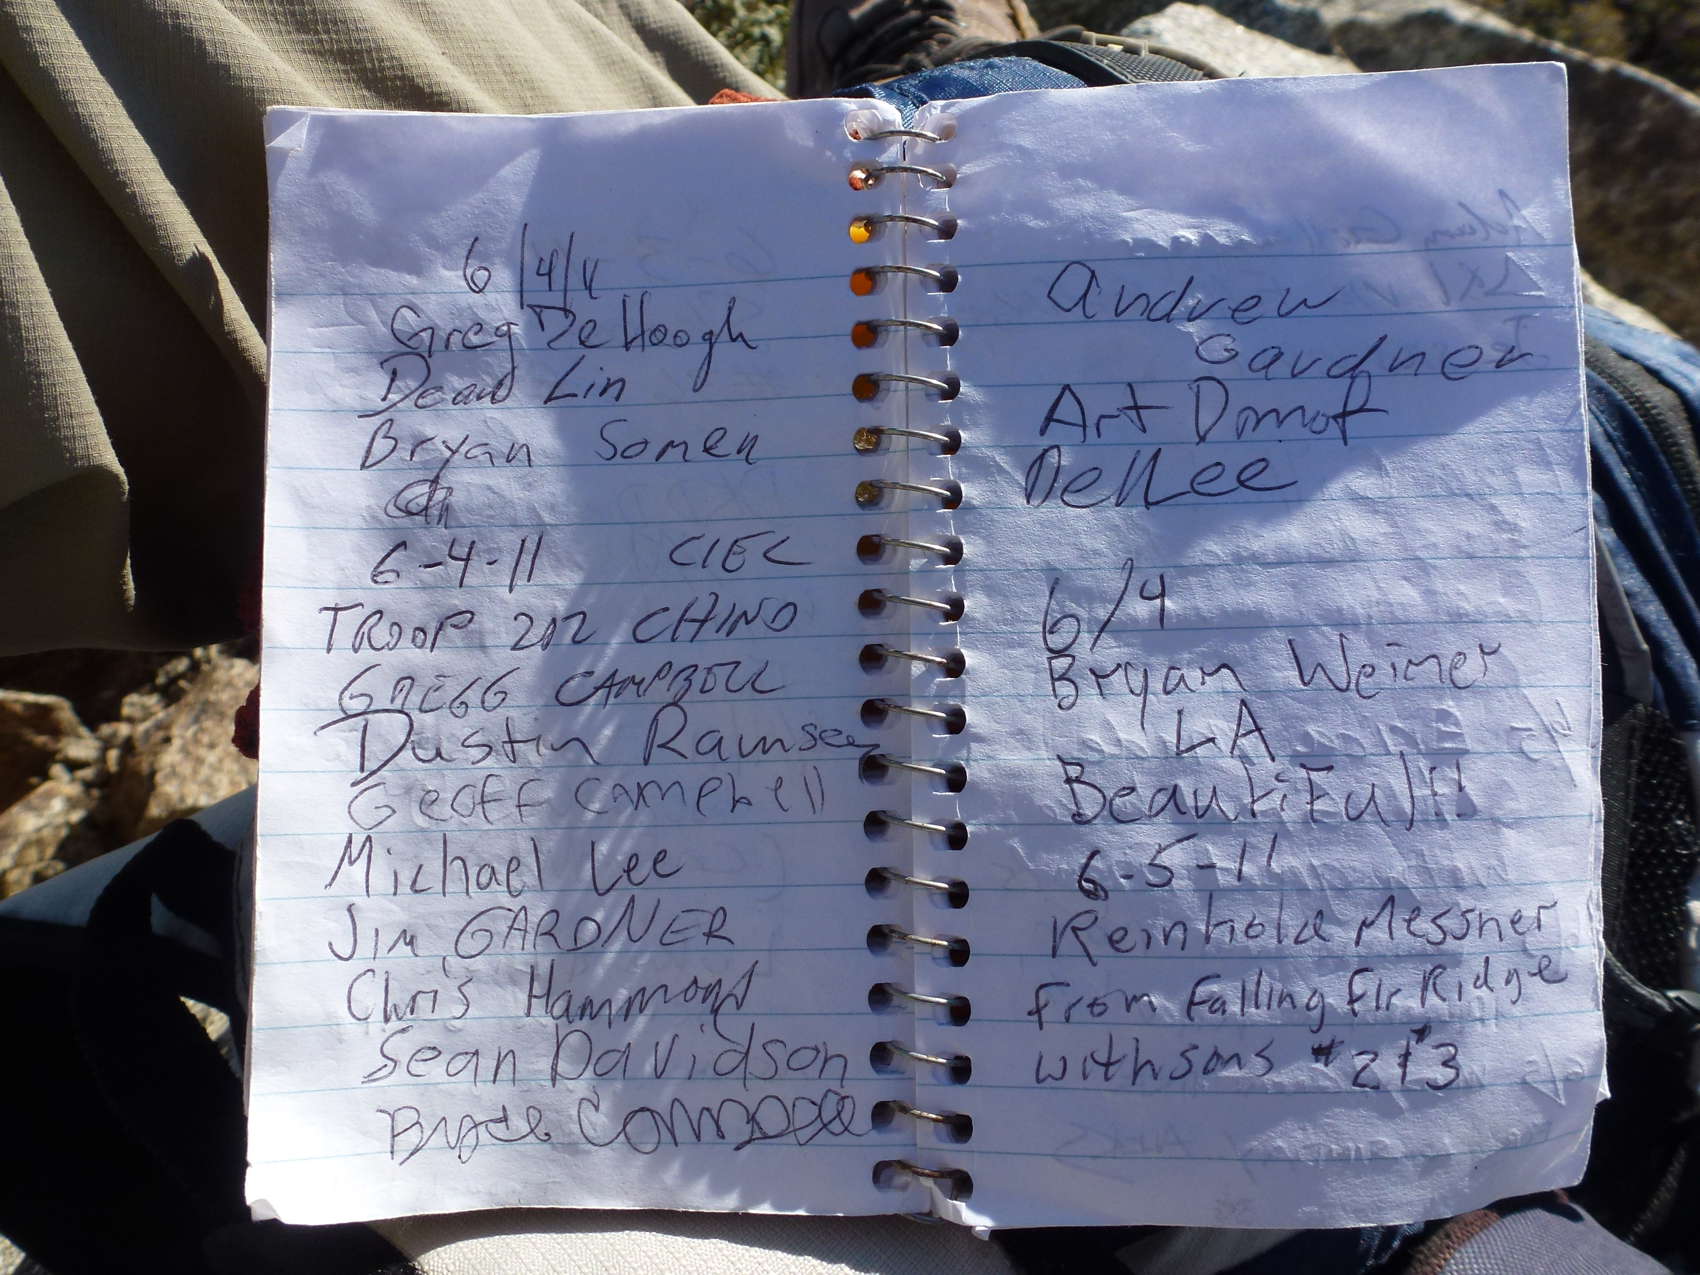 6/4/11
Greg DeHoogh
Dean Lin
Bryan Somer
6-4-11 CIEC
TROOP 212 CHINO
GREGG CAMPBELL
Dustin Ramsey
Geoff Campbell
Michael Lee
JIM GARDNER
Chris Hammond
Sean Davidson
Bryce
Andrew
Gardner
Art
6/4
Bryan Weimer
LA
BeautiFul!!
6-5-11
Reinhold Messner
From Falling Fir Ridge
with sons #2 + #3